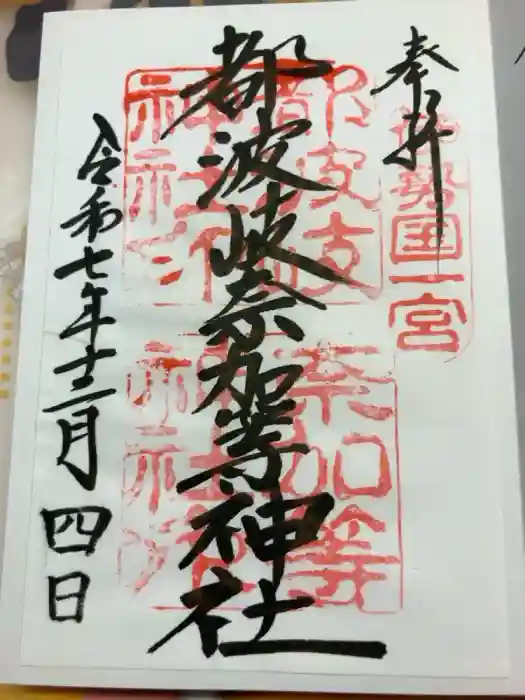 奉拝
伊勢国一宮
都波岐奈加等神社
都波岐
神社印
奈加等
神社
令和七年十二月四日